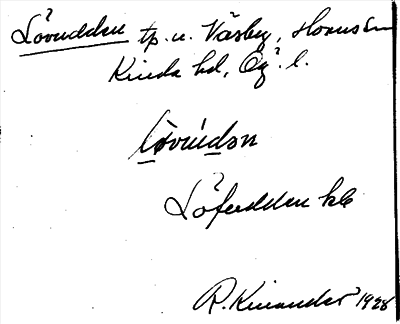 Lövudden tp. u. Väsby, Horns sn
Kinda hd, Ög. l.
lövúdən
Löfudden kb
R. Kinander 1928